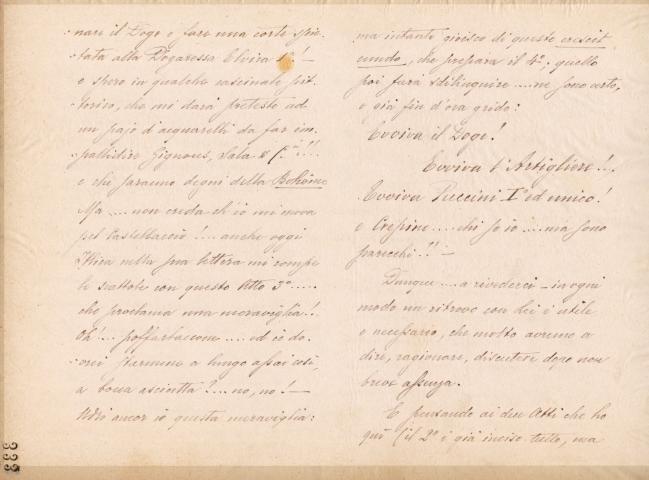 nare il Doge e fare una corte spie-
tata alla Dogaressa Elvira 1ª! —
e spero in qualche cascinale pit-
torico, che mi darà pretesto ad
un pajo d'acquarelli da far im-
pallidire Gignous, Sala e C.ia!!!
e che saranno degni della Bohème
Ma .... non creda ch'io mi mova
pel Castellaccio! .... anche oggi
Illica nella sua lettera mi rompe
le scattole con questo Atto 3º .....
che proclama una meraviglia!!
Oh! ... poffarbaccone .... ed io do-
vrei starmene a lungo assai così,
a bocca asciutta? .... no, no! —
Udrò ancor io questa meraviglia:
ma intanto gioisco di questo crescit
eundo, che prepara il 4º, quello
poi farà sdilinquire .... ne sono certo,
e già fin d'ora grido:
Evviva il Doge!
Evviva l'Artigliere! ..
Evviva Puccini Iº ed unico!
e Crepino .... chi so io .... ma sono
parecchi!! —
Dunque .... a rivederci — in ogni
modo un ritrovo con Lei è utile
e necessario, chè molto avremo a
dire, ragionare, discutere dopo non
breve assenza.
E pensando ai due Atti che ho
quì (il 2º è già inciso tutto, ma
333